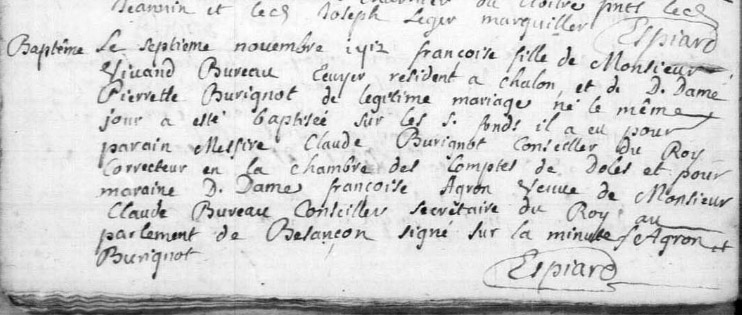 Jeannin et led. Joseph Leger marguiller
Espiard
Baptême Le septieme novembre 1712 françoise fille de Monsieur
Vivand Bureau Ecuyer resident a chalon, et de D. Dame
Pierrette Burignot de legitime mariage né le même
jour a esté baptisée sur les S. fonds il a eu pour
parain Messire Claude Burignot Conseiller du Roy
Correcteur en la chambre des Comptes de Dole et pour
maraine D. Dame francoise Agron Veuve de Monsieur
Claude Bureau Conseiller secrétaire du Roy au
parlement de Besançon signé sur la minute f. Agron et
Burignot
Espiard